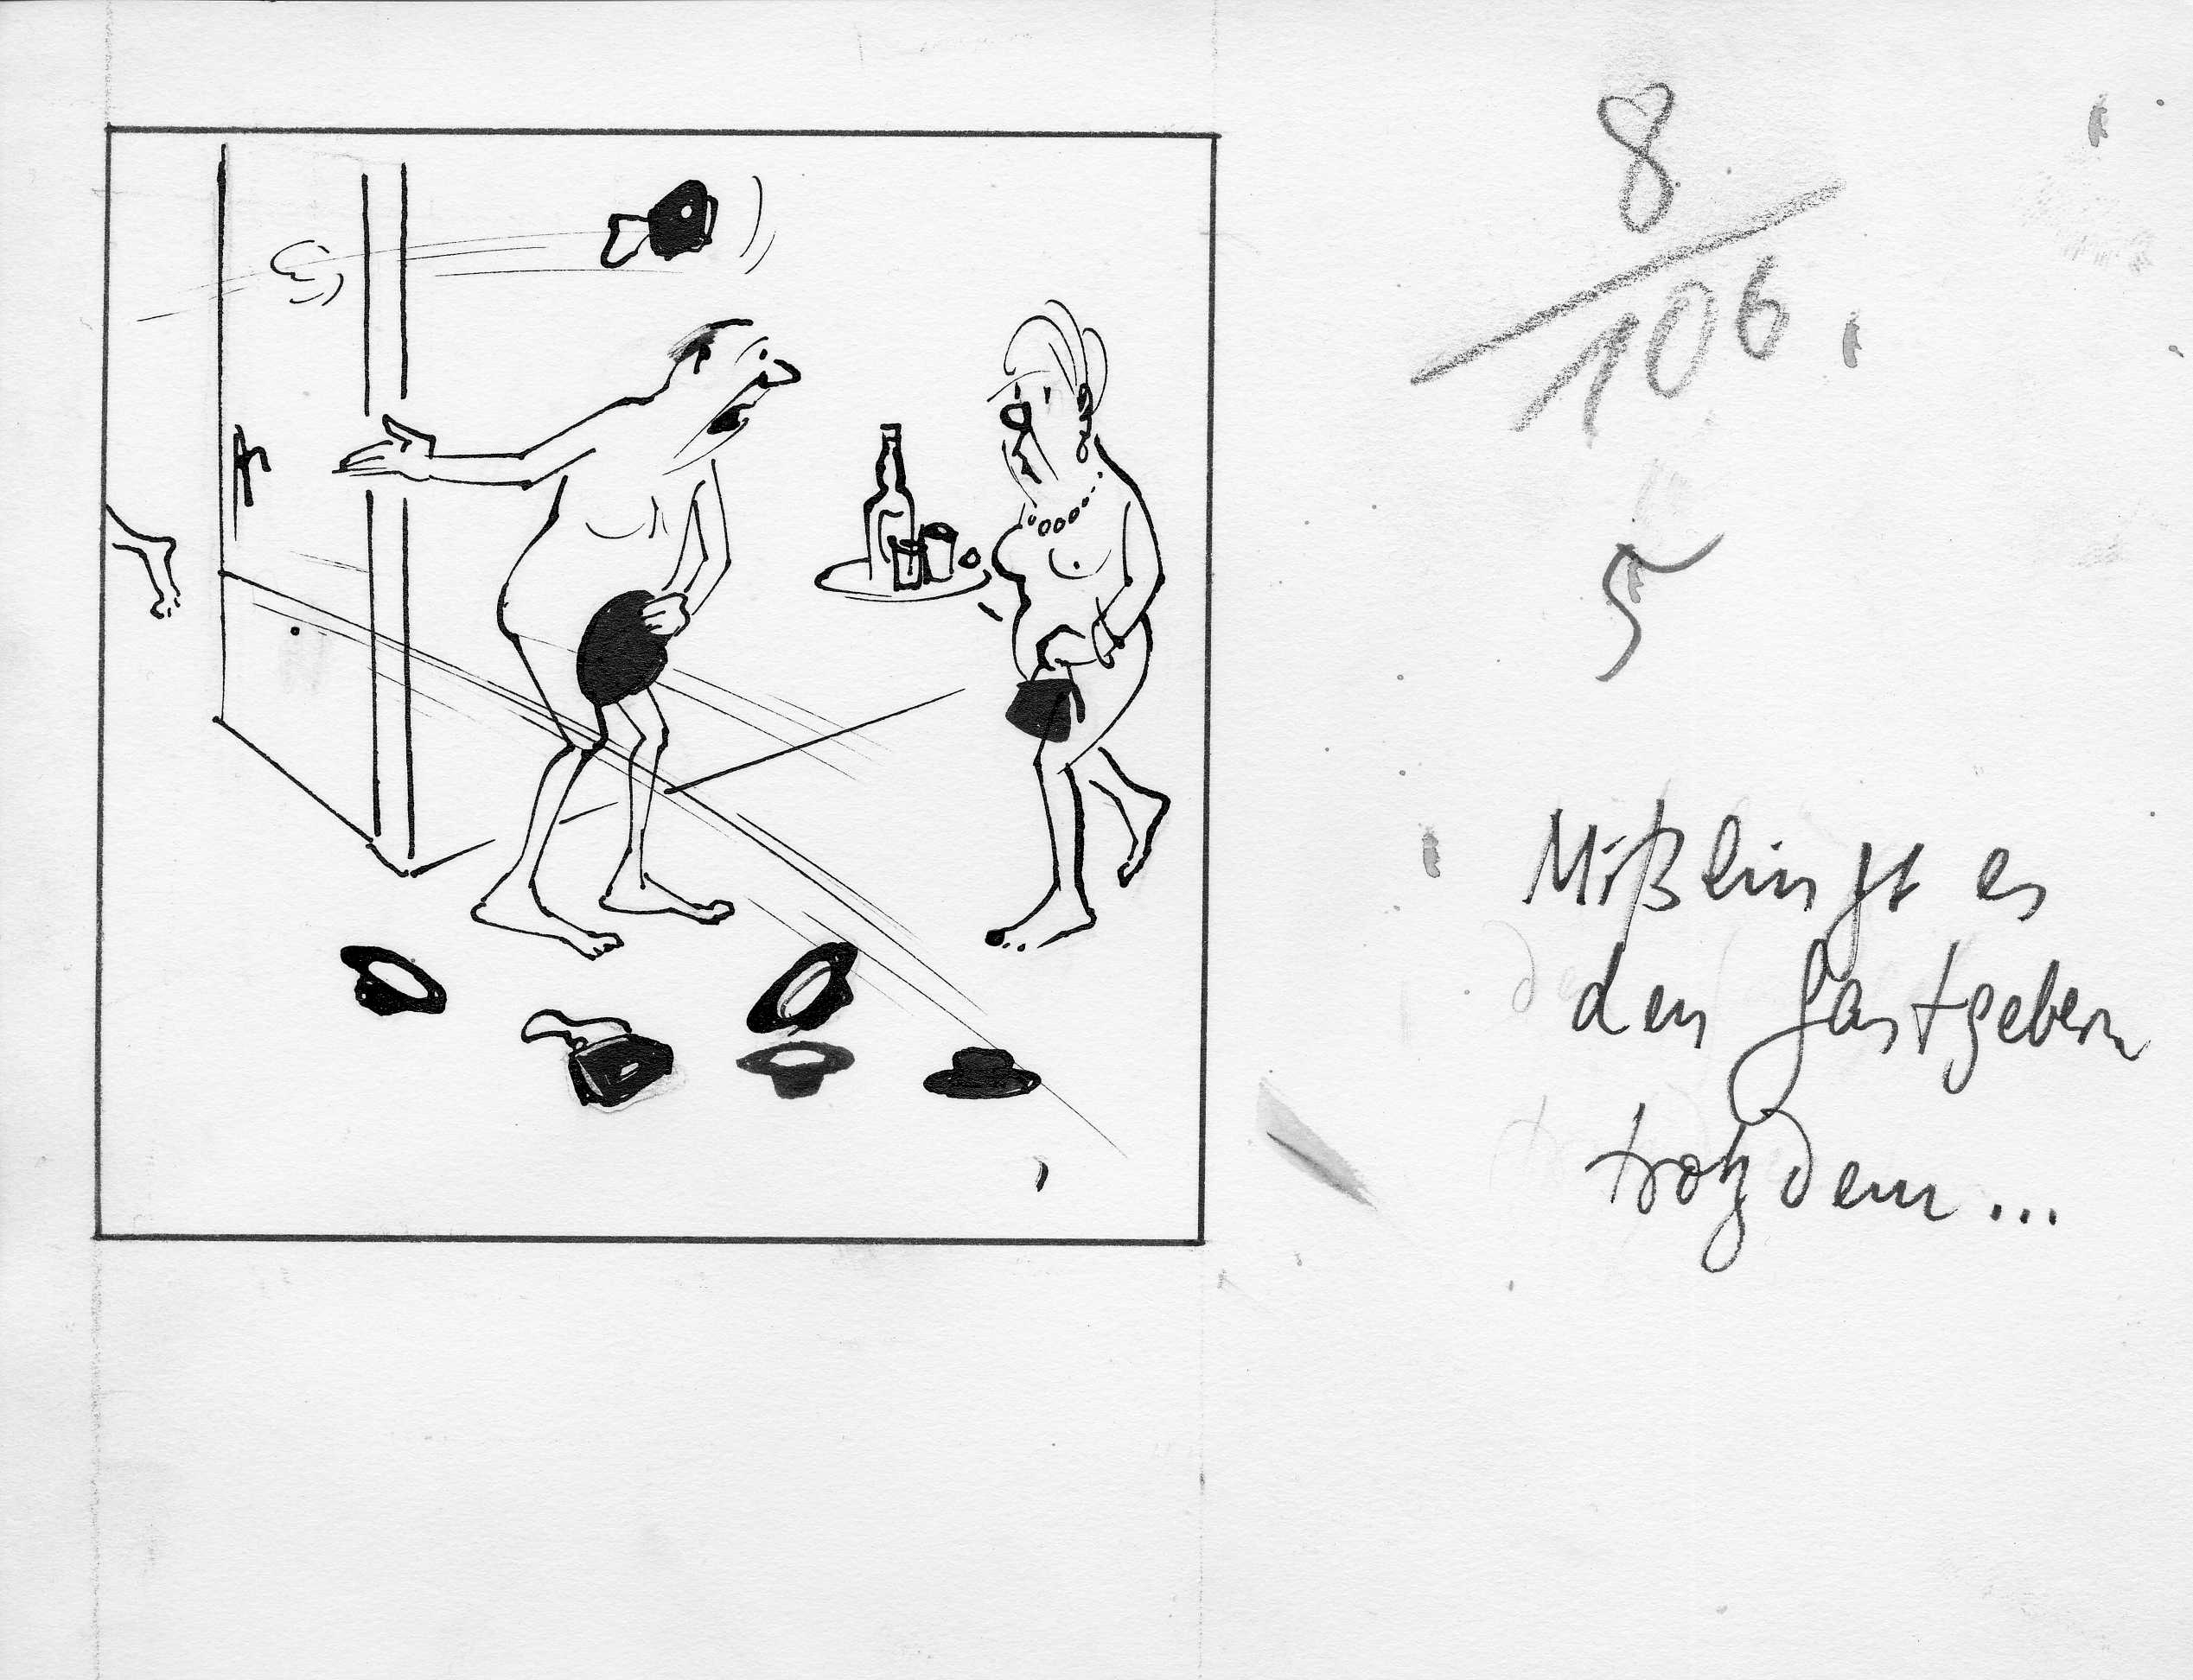 8
106
5
Mißlingt es
den Gastgebern
trotzdem...